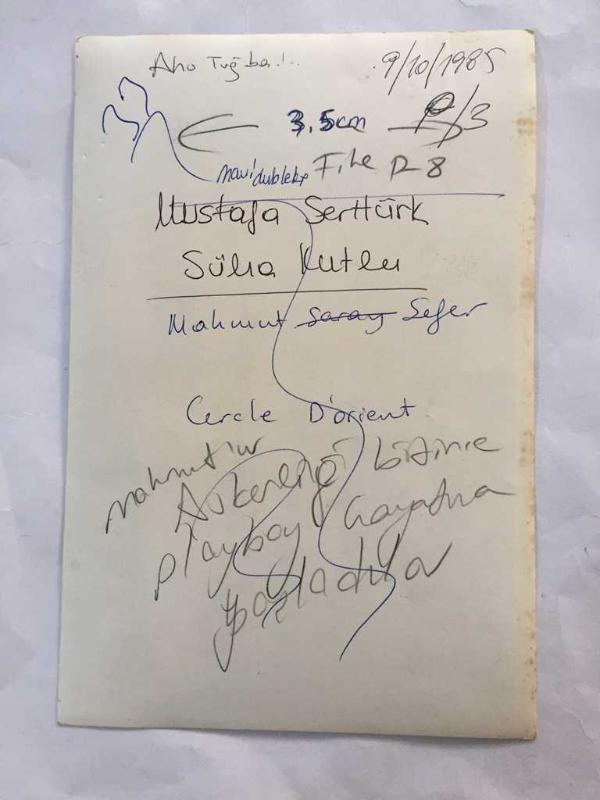 Ahu Tuğba!..
9/10/1985
3.5cm
/3
mavi dubleks File R-8
Mustafa Serttürk
Süha Kutlu
Mahmut Saray Sefer
Cercle D'orient
mahmut'un
Askerliği bitince
playboy hayatına
başladılar